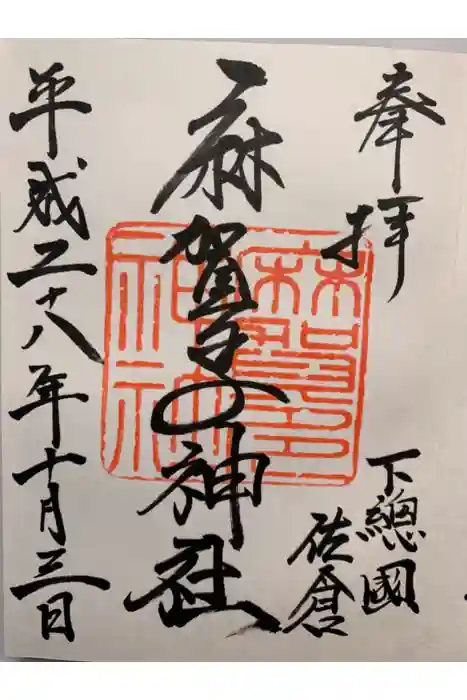 奉拝
下總國
佐倉
麻賀多神社
麻賀多
神社
平成二十八年十月三日